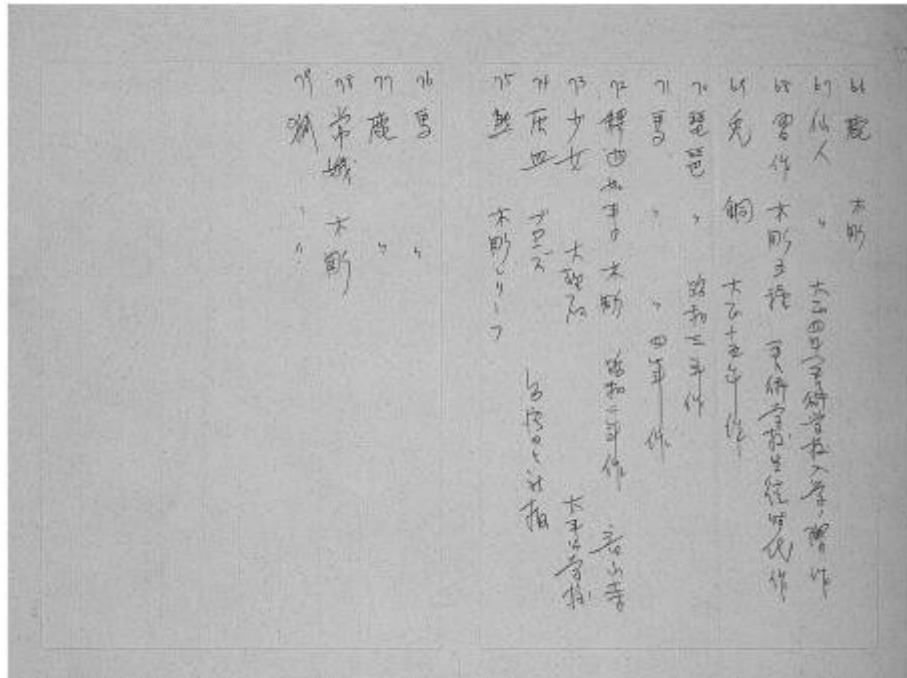 66 鹿 木彫
67 仙人 〃 大正四年美術学校入学ノ習作
68 習作 木彫 美術学校生徒時代作
69 兎 銅 大正十五年作
70 琵琶 〃 昭和三年作
71 馬 〃 〃 四年作
72 釋迦 木彫 昭和二年作
73 少女 大理石 太平公学校
74 灰皿 ブロンズ
75 木彫レリーフ
76 馬 〃
77 鹿 〃
78 常娥 木彫
79 〃 〃